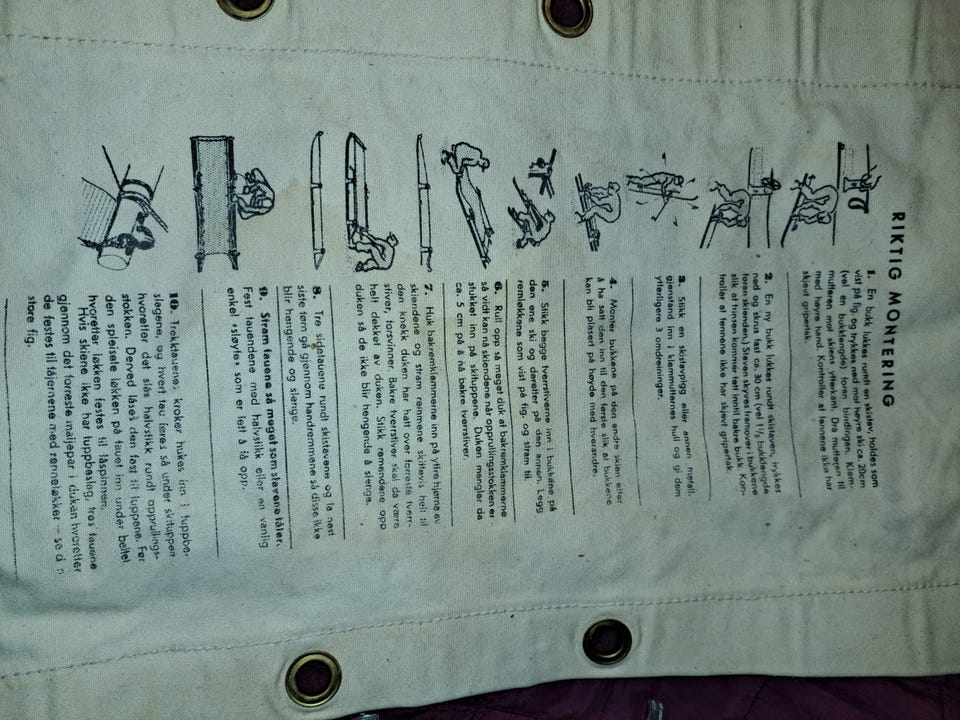 RIKTIG MONTERING
1. En bukk lukes rundt en skistav, holdes som
vist på fig. og trykkes ned mot høyre ski ca. 20cm
(vel en bukklengde) foran bindingen. Klem-
mutteren mot skiens ytterkant. Dra mutteren til
med høyre hånd. Kontroller at tennene ikke har
skjevt gripertak.
2. En ny bukk lukkes rundt skistaven, trykkes
ned og skrus fast ca. 30 cm (vel 1½ bukklengde
foran skienden.) Staven skyves framover i bukkene
slik at trinsen kommer tett inntil bakre bukk. Kon-
troller at tennene ikke har skjevt gripertak.
3. Stikk en skistavpigg eller annen metall-
gjenstand inn i klemmutternes hull og gi dem
ytterligere 3 omdreininger.
4. Monter bukkene på den andre skien etter
å ha satt den inntil den første slik at bukkene
kan bli plasert på høyde med hverandre.
5. Stikk begge tverrstiverne inn i bukkene på
den ene ski og deretter på den annen. Legg
remløkkene som vist på fig. og stram til.
6. Rull opp så meget duk at bakremklammerne
så vidt kan nå skiendene når opprullingsstokken er
stukket inn på skituppene. Duken mangler da
ca. 5 cm på å nå bakre tverrstiver.
7. Huk bakremklammerne inn på ytre hjørne av
skiendene og stram remmene skiftevis heit til
den knekk duken har hatt over forreste tverr-
stiver, forsvinner. Bakre tverrstiver skal da være
helt dekket av duken. Stikk remendene opp
duken så de ikke blir hengende å slenge.
8. Tre sidetauene rundt skistavene og la nest
siste tørn gå gjennom handremmene så disse ikke
blir hengende og slenge.
9. Stram tauene så meget som stavene tåler.
Fest tauendene med halvstikk eller en vanlig
enkel «sløyfe» som er lett å få opp.
10. Trekktauenes kroker hukes inn i tuppbe-
slagene og hvert tau føres så under skituppen
hvoretter det slås halvstikk rundt opprullings-
stokken. Derved låses den fast til tuppene. Før
den spleisete løkken på tauet inn under beltet
hvoretter løkken festes til låspinnen.
Hvis skiene ikke har tuppbeslag, tres tauene
gjennom det forreste maljepar i duken hvoretter
de festes til tåjernene med renneløkker – se d n
store fig.